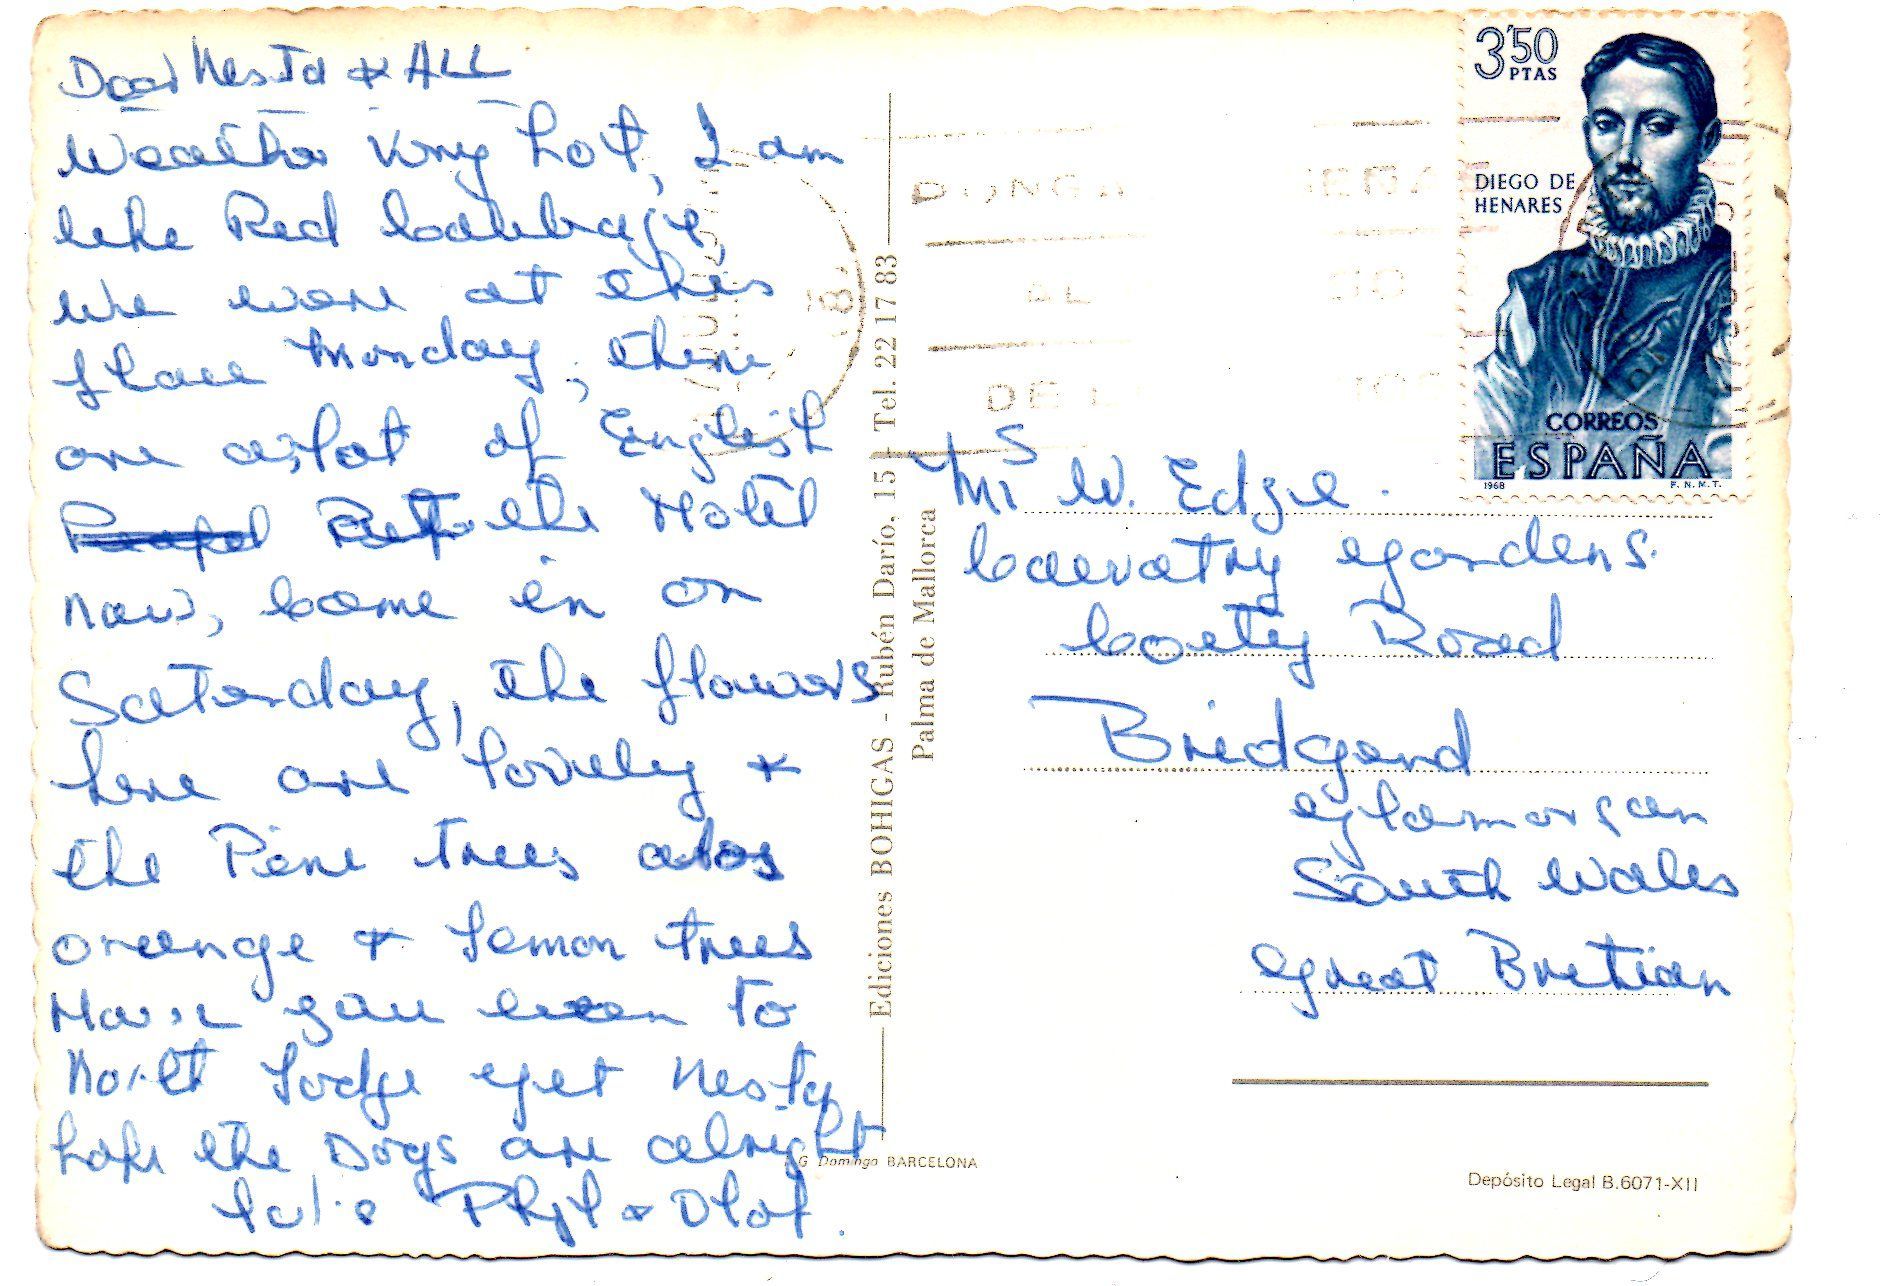 Dear Nesta & ALL
Weather Very hot, I am
like Red Cabbage,
We were at this
place Monday, there
are a lot of English
the Hotel
now, came in on
Saturday, the flowers
here are lovely &
the Pine trees
orange & lemon trees
Have you been to
North Lodge yet Nesta
hope the Dogs are alright
Phyl & Olaf.
Ediciones BOHIGAS - Rubén Darío, 15 - Tel. 22 17 83
Palma de Mallorca
G Domingo BARCELONA
3'50
PTAS
DIEGO DE
HENARES
CORREOS
ESPAÑA
1968 F.N.M.T.
AL
DE
Mrs W. Edge.
gardens.
Coity Road
Bridgend
Glamorgan
South Wales
Great Bretian
Depósito Legal B.6071-XII